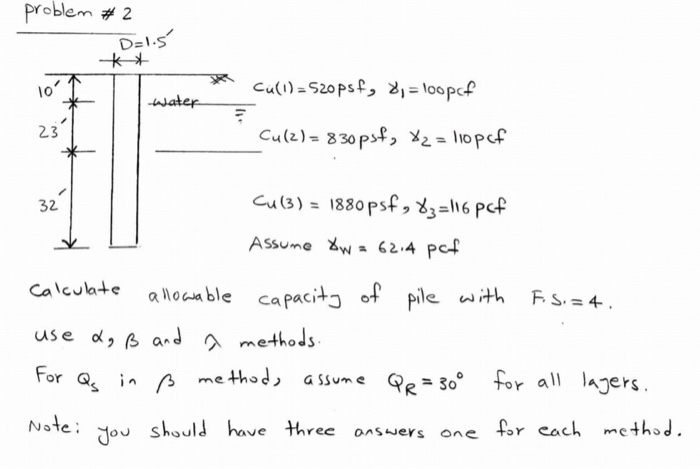 problem # 2
D=1.5'
10'
Cu(1)=520psf, γ1=100pcf
water
23'
Cu(2)= 830psf, γ2= 110pcf
32'
Cu(3) = 1880psf, γ3=116 pcf
Assume γw = 62.4 pcf
Calculate allowable capacity of pile with F.S.=4.
use α, β and λ methods.
For Qs in β method, assume QR=30° for all layers.
Note: you should have three answers one for each method.